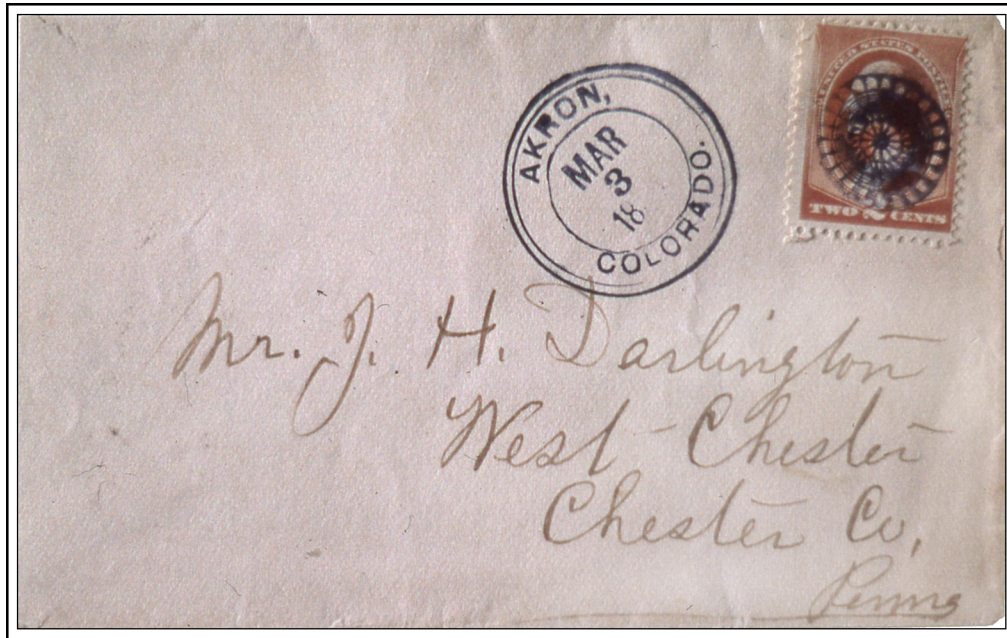 AKRON,
MAR
3
18
COLORADO.
UNITED STATES POSTAGE
TWO 2 CENTS
Mr. J. H. Darlington
West-Chester
Chester Co,
Penna